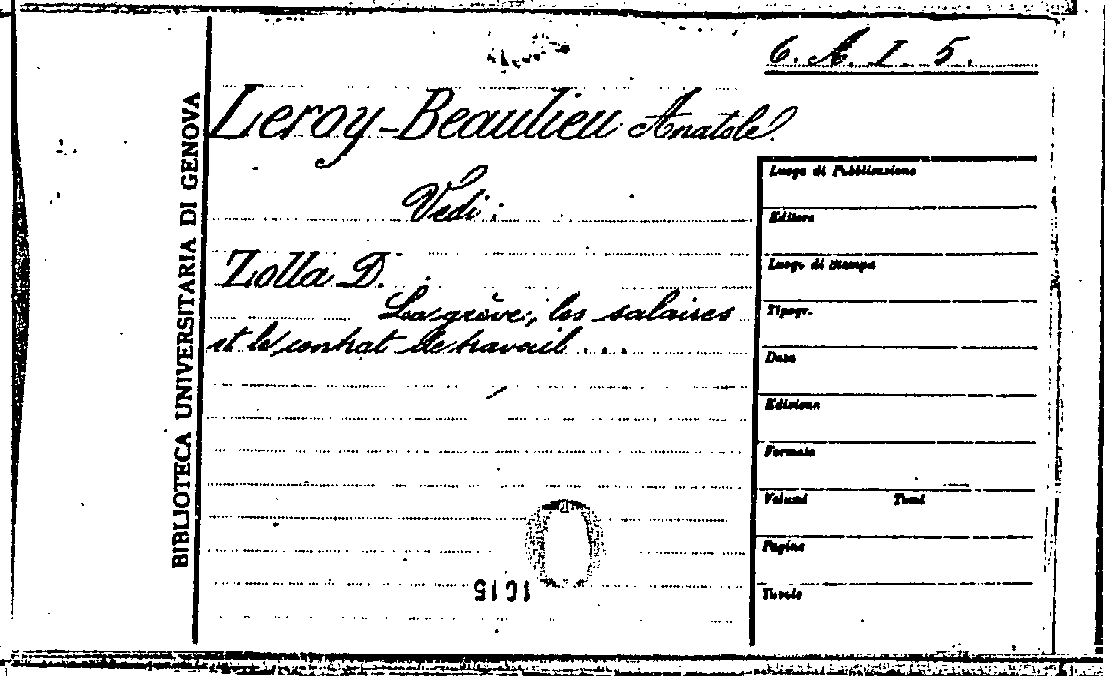 6. A. I. 5.
BIBLIOTECA UNIVERSITARIA DI GENOVA
Leroy-Beaulieu Anatole
Vedi:
Zolla D.
La grève, les salaires
et le contrat de travail...
Luogo di Pubblicazione
Editore
Luogo di stampa
Tipogr.
Data
Edizione
Formato
Volumi Tomi
Pagine
Tavole